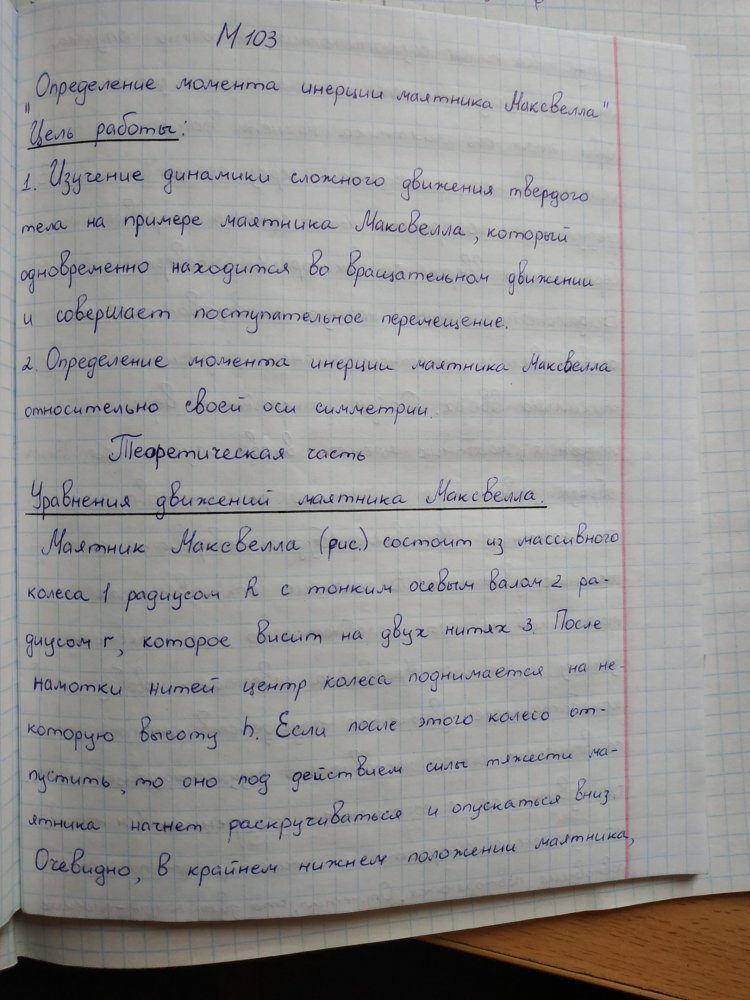 М 103
"Определение момента инерции маятника Максвелла"
Цель работы:
1. Изучение динамики сложного движения твердого
тела на примере маятника Максвелла, который
одновременно находится во вращательном движении
и совершает поступательное перемещение.
2. Определение момента инерции маятника Максвелла
относительно своей оси симметрии.
Теоретическая часть
Уравнения движений маятника Максвелла.
Маятник Максвелла (рис.) состоит из массивного
колеса 1 радиусом R с тонким осевым валом 2 ра-
диусом r, которое висит на двух нитях 3. После
намотки нитей центр колеса поднимается на не-
которую высоту h. Если после этого колесо от-
пустить, то оно под действием силы тяжести ма-
ятника начнет раскручиваться и опускаться вниз.
Очевидно, в крайнем нижнем положении маятника,